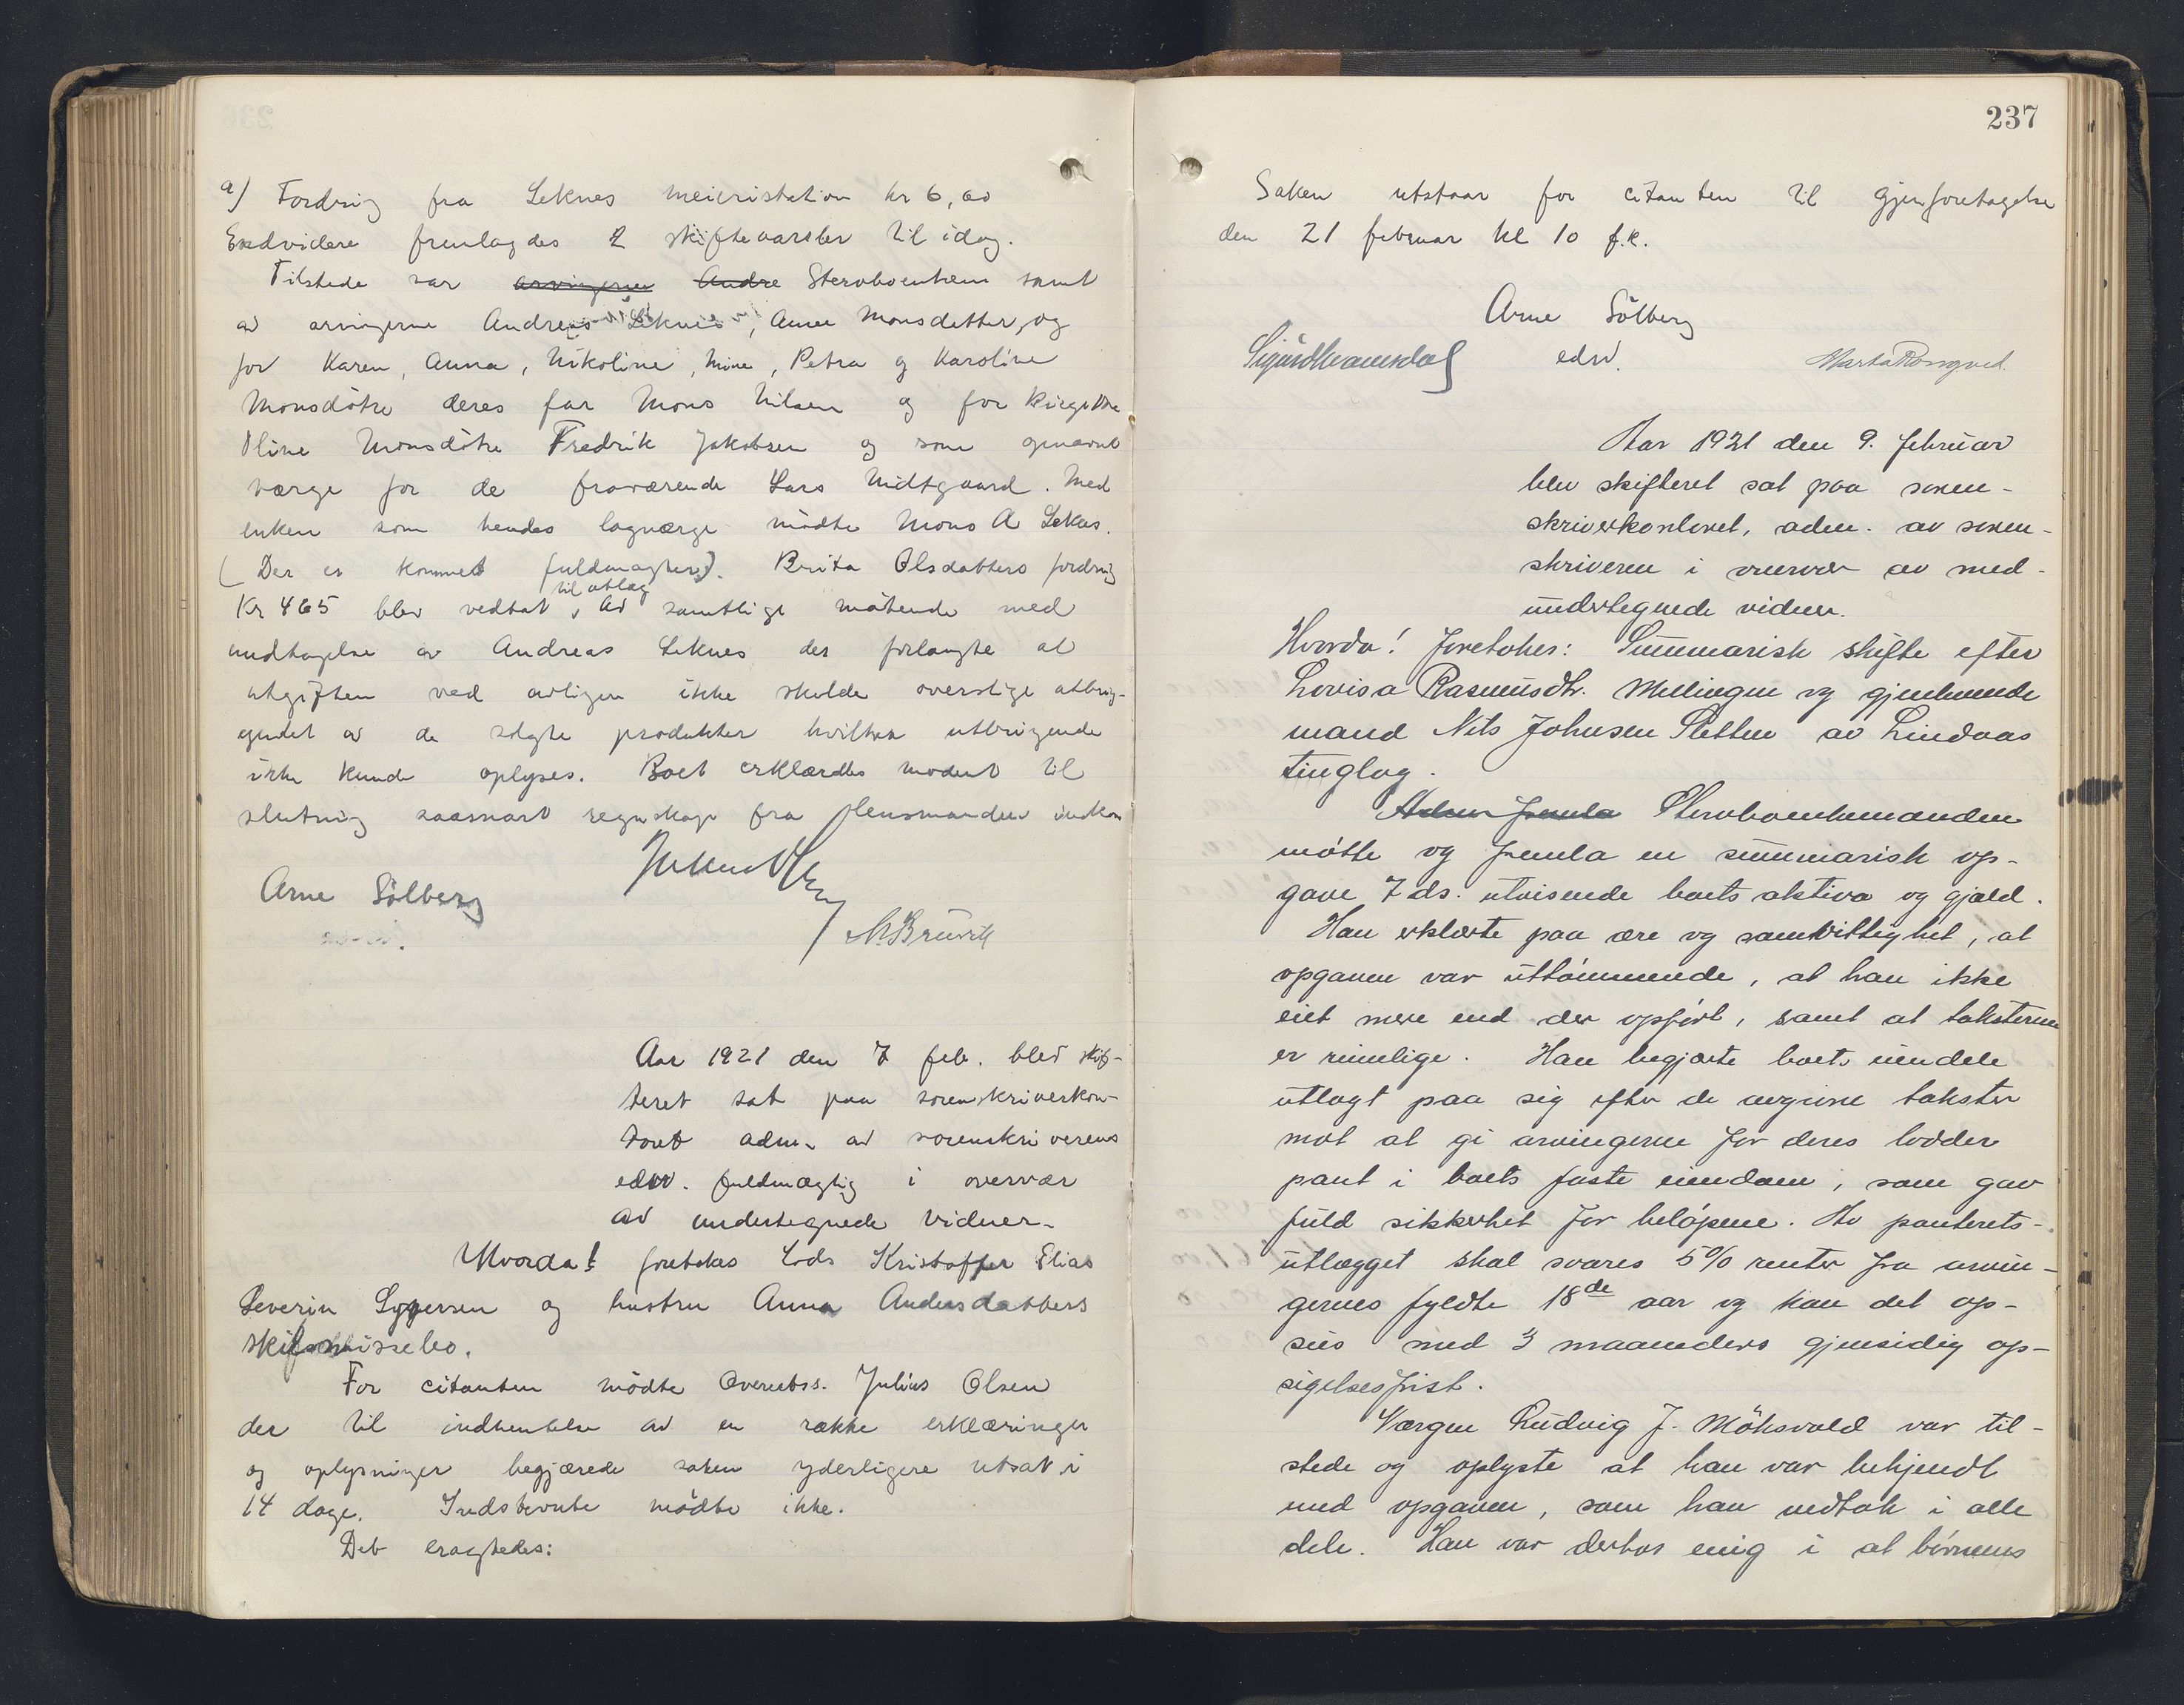 a) Fordring fra Leknes meieristation kr 6,00
Endvidere fremlagdes 2 skiftevarsler til idag.
Tilstede var arvingerne Andre Stervboenken samt
av arvingerne Andreas Leknes, Anne Monsdatter, og
for Karen, Anna, Nikoline, Mine, Petra og Karoline
Monsdøtre deres far Mons Nilsen og for Birgitte
Oline Monsdøtre Fredrik Jakobsen og som opnævnt
værge for de fraværende Lars Midtgaard. Med
enken som hendes lagværge mødte Mons A Leknes.
(Der er kommet fuldmagter). Brita Olsdatters fordring
til utlæg
Kr 465 blev vedtat, av samtlige møtende med
undtagelse av Andreas Leknes der forlangte at
utgiften ved avlingen ikke skulde overstige utbrin-
gendet av de solgte produkter hvilket utbringende
ikke kunde oplyses. Boet erklærdes modent til
slutning saasnart regnskap fra lensmanden indkom
Arne Sölberg
M. Bruvik
Aar 1921 den 7 feb. blev skif-
teret sat paa sorenskriverkon-
toret adm. av sorenskriverens
edsv. fuldmægtig i overvær
av undertegnede vidner.
Hvorda! foretokes Lods Kristoffer Elias
Severin Syversen og hustru Anna Andersdatters
skilsmissebo.
For citanten mödte Overretss. Julius Olsen
der til indhentelse av en række erklæringer
og oplysninger begjærede saken yderligere utsat i
14 dage. Indstevnte mödte ikke.
Det eragtedes:
237
Saken utstaar for citanten til gjenforetagelse
den 21 februar kl 10 f.k.
Arne Sölberg
edsv.
Sigurd Kvamsdal
Marta Rongved
Aar 1921 den 9. februar
blev skifteret sat paa soren-
skriverkontoret, adm. av soren-
skriveren i overvær av med-
undertegnede vidner.
Hvorda! foretokes: Summarisk skifte efter
Lovisa Rasmusdtr. Mellingen og gjenlevende
mand Nils Johnsen Sletten av Lindaas
tinglag.
Adm. fremla Stervboenkemanden
møtte og fremla en summarisk op-
gave 7 ds. utvisende boets aktiva og gjæld.
Han erklærte paa ære og samvittighet, at
opgaven var uttømmende, at han ikke
eiet mere end der opført, samt at taksterne
er rimelige. Han begjærte boets eiendele
utlagt paa sig efter de avgivne takster
mot at gi arvingerne for deres lodder
pant i boets faste eiendom, som gav
fuld sikkerhet for beløpene. Av panterets-
utlægget skal svares 5% renter fra arvin-
gernes fyldte 18de aar og kan det op-
sies med 3 maaneders gjensidig op-
sigelsesfrist.
Værgen Ludvig J. Möksvold var til-
stede og oplyste at han var bekjendt
med opgaven, som han vedtok i alle
dele. Han var derhos enig i at børnenes